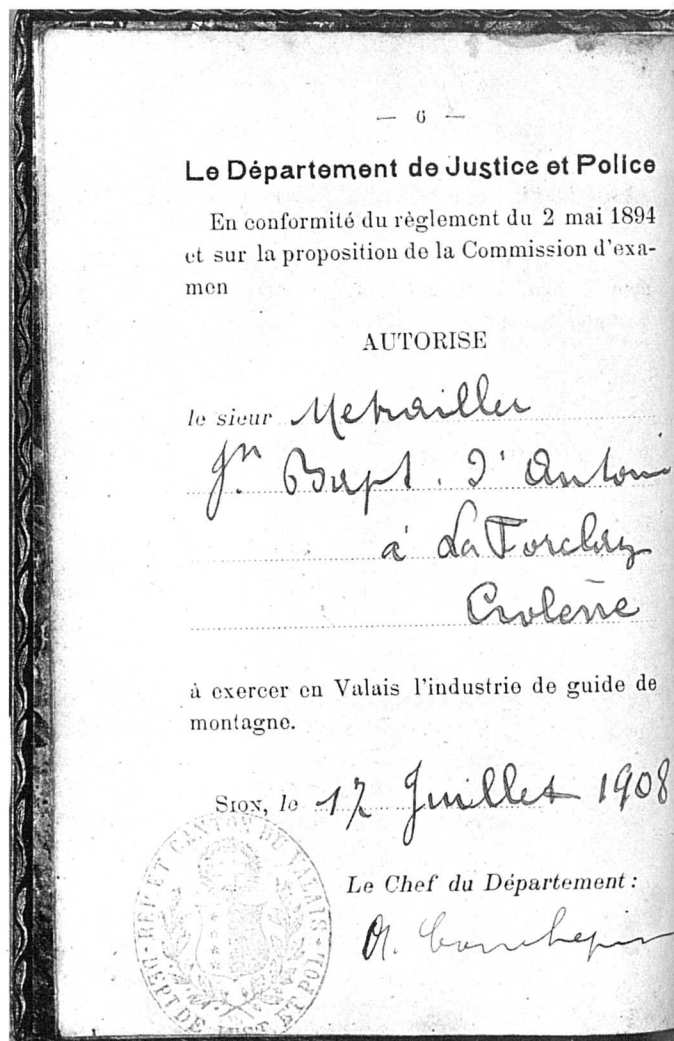 — 6 —
Le Département de Justice et Police
En conformité du règlement du 2 mai 1894
et sur la proposition de la Commission d'exa-
men
AUTORISE
le sieur Metrailler
Jn Bapt. d'Antoni
à La Forclaz
Evolène
à exercer en Valais l'industrie de guide de
montagne.
Sion, le 17 Juillet 1908
Le Chef du Département :
REP ET CANTON DU VALAIS
DEPT DE JUST ET POL